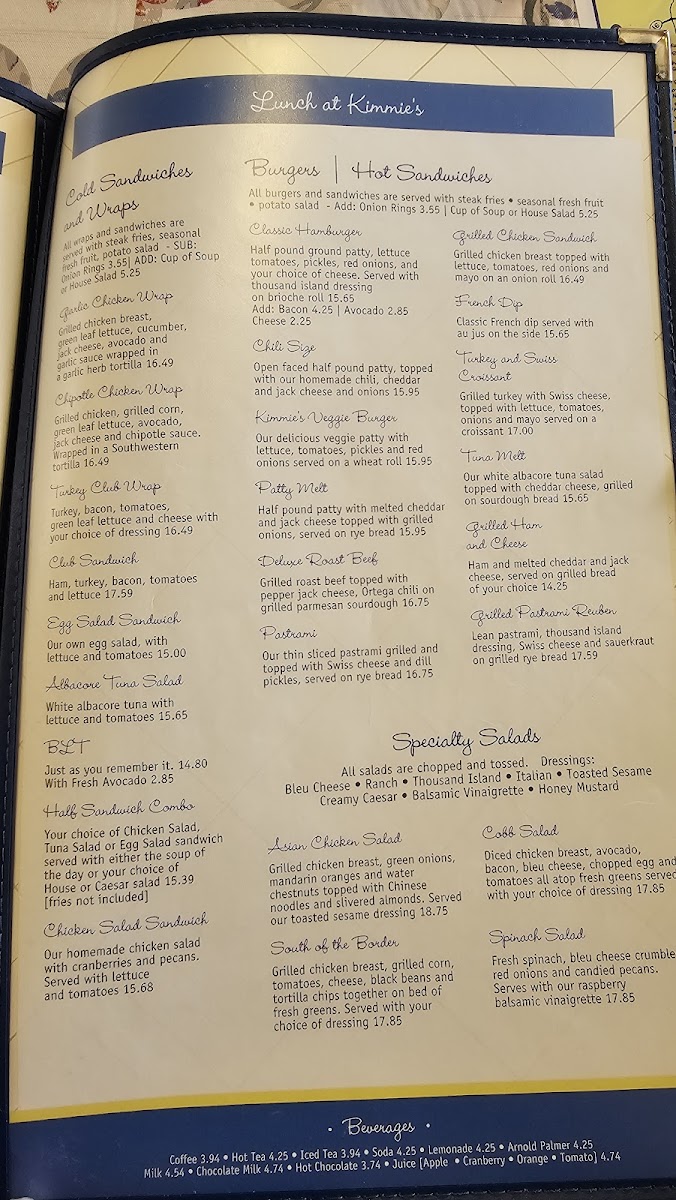 Lunch at Kimmie's
Cold Sandwiches
and Wraps
All wraps and sandwiches are
served with steak fries, seasonal
fresh fruit, potato salad - SUB:
Onion Rings 3.55| ADD: Cup of Soup
or House Salad 5.25
Garlic Chicken Wrap
Grilled chicken breast,
green leaf lettuce, cucumber,
jack cheese, avocado and
garlic sauce wrapped in
a garlic herb tortilla 16.49
Chipotle Chicken Wrap
Grilled chicken, grilled corn,
green leaf lettuce, avocado,
jack cheese and chipotle sauce.
Wrapped in a Southwestern
tortilla 16.49
Turkey Club Wrap
Turkey, bacon, tomatoes,
green leaf lettuce and cheese with
your choice of dressing 16.49
Club Sandwich
Ham, turkey, bacon, tomatoes
and lettuce 17.59
Egg Salad Sandwich
Our own egg salad, with
lettuce and tomatoes 15.00
Albacore Tuna Salad
White albacore tuna with
lettuce and tomatoes 15.65
BLT
Just as you remember it. 14.80
With Fresh Avocado 2.85
Half Sandwich Combo
Your choice of Chicken Salad,
Tuna Salad or Egg Salad sandwich
served with either the soup of
the day or your choice of
House or Caesar salad 15.39
[fries not included]
Chicken Salad Sandwich
Our homemade chicken salad
with cranberries and pecans.
Served with lettuce
and tomatoes 15.68
Burgers | Hot Sandwiches
All burgers and sandwiches are served with steak fries • seasonal fresh fruit
• potato salad - Add: Onion Rings 3.55 | Cup of Soup or House Salad 5.25
Classic Hamburger
Half pound ground patty, lettuce
tomatoes, pickles, red onions, and
your choice of cheese. Served with
thousand island dressing
on brioche roll 15.65
Add: Bacon 4.25 | Avocado 2.85
Cheese 2.25
Chili Size
Open faced half pound patty, topped
with our homemade chili, cheddar
and jack cheese and onions 15.95
Kimmie's Veggie Burger
Our delicious veggie patty with
lettuce, tomatoes, pickles and red
onions served on a wheat roll 15.95
Patty Melt
Half pound patty with melted cheddar
and jack cheese topped with grilled
onions, served on rye bread 15.95
Deluxe Roast Beef
Grilled roast beef topped with
pepper jack cheese, Ortega chili on
grilled parmesan sourdough 16.75
Pastrami
Our thin sliced pastrami grilled and
topped with Swiss cheese and dill
pickles, served on rye bread 16.75
Grilled Chicken Sandwich
Grilled chicken breast topped with
lettuce, tomatoes, red onions and
mayo on an onion roll 16.49
French Dip
Classic French dip served with
au jus on the side 15.65
Turkey and Swiss
Croissant
Grilled turkey with Swiss cheese,
topped with lettuce, tomatoes,
onions and mayo served on a
croissant 17.00
Tuna Melt
Our white albacore tuna salad
topped with cheddar cheese, grilled
on sourdough bread 15.65
Grilled Ham
and Cheese
Ham and melted cheddar and jack
cheese, served on grilled bread
of your choice 14.25
Grilled Pastrami Reuben
Lean pastrami, thousand island
dressing, Swiss cheese and sauerkraut
on grilled rye bread 17.59
Specialty Salads
All salads are chopped and tossed. Dressings:
Bleu Cheese • Ranch • Thousand Island • Italian • Toasted Sesame
Creamy Caesar • Balsamic Vinaigrette • Honey Mustard
Asian Chicken Salad
Grilled chicken breast, green onions,
mandarin oranges and water
chestnuts topped with Chinese
noodles and slivered almonds. Served
our toasted sesame dressing 18.75
South of the Border
Grilled chicken breast, grilled corn,
tomatoes, cheese, black beans and
tortilla chips together on bed of
fresh greens. Served with your
choice of dressing 17.85
Cobb Salad
Diced chicken breast, avocado,
bacon, bleu cheese, chopped egg and
tomatoes all atop fresh greens served
with your choice of dressing 17.85
Spinach Salad
Fresh spinach, bleu cheese crumble
red onions and candied pecans.
Serves with our raspberry
balsamic vinaigrette 17.85
• Beverages •
Coffee 3.94 • Hot Tea 4.25 • Iced Tea 3.94 • Soda 4.25 • Lemonade 4.25 • Arnold Palmer 4.25
Milk 4.54 • Chocolate Milk 4.74 • Hot Chocolate 3.74 • Juice [Apple • Cranberry • Orange • Tomato] 4.74